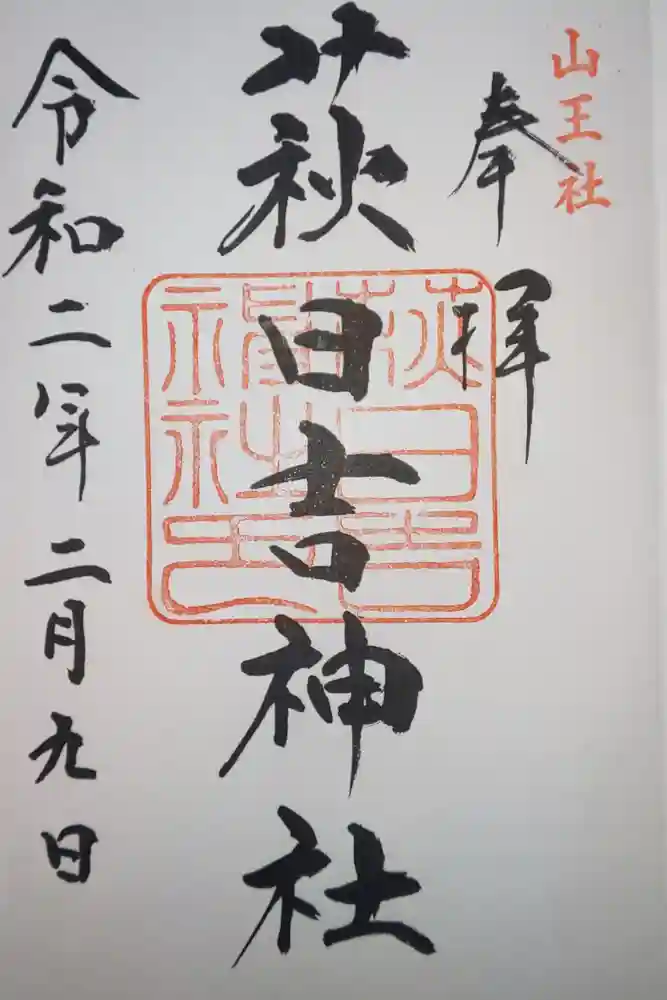 山王社
奉拝
萩日吉神社
萩日吉
神社印
令和二年二月九日